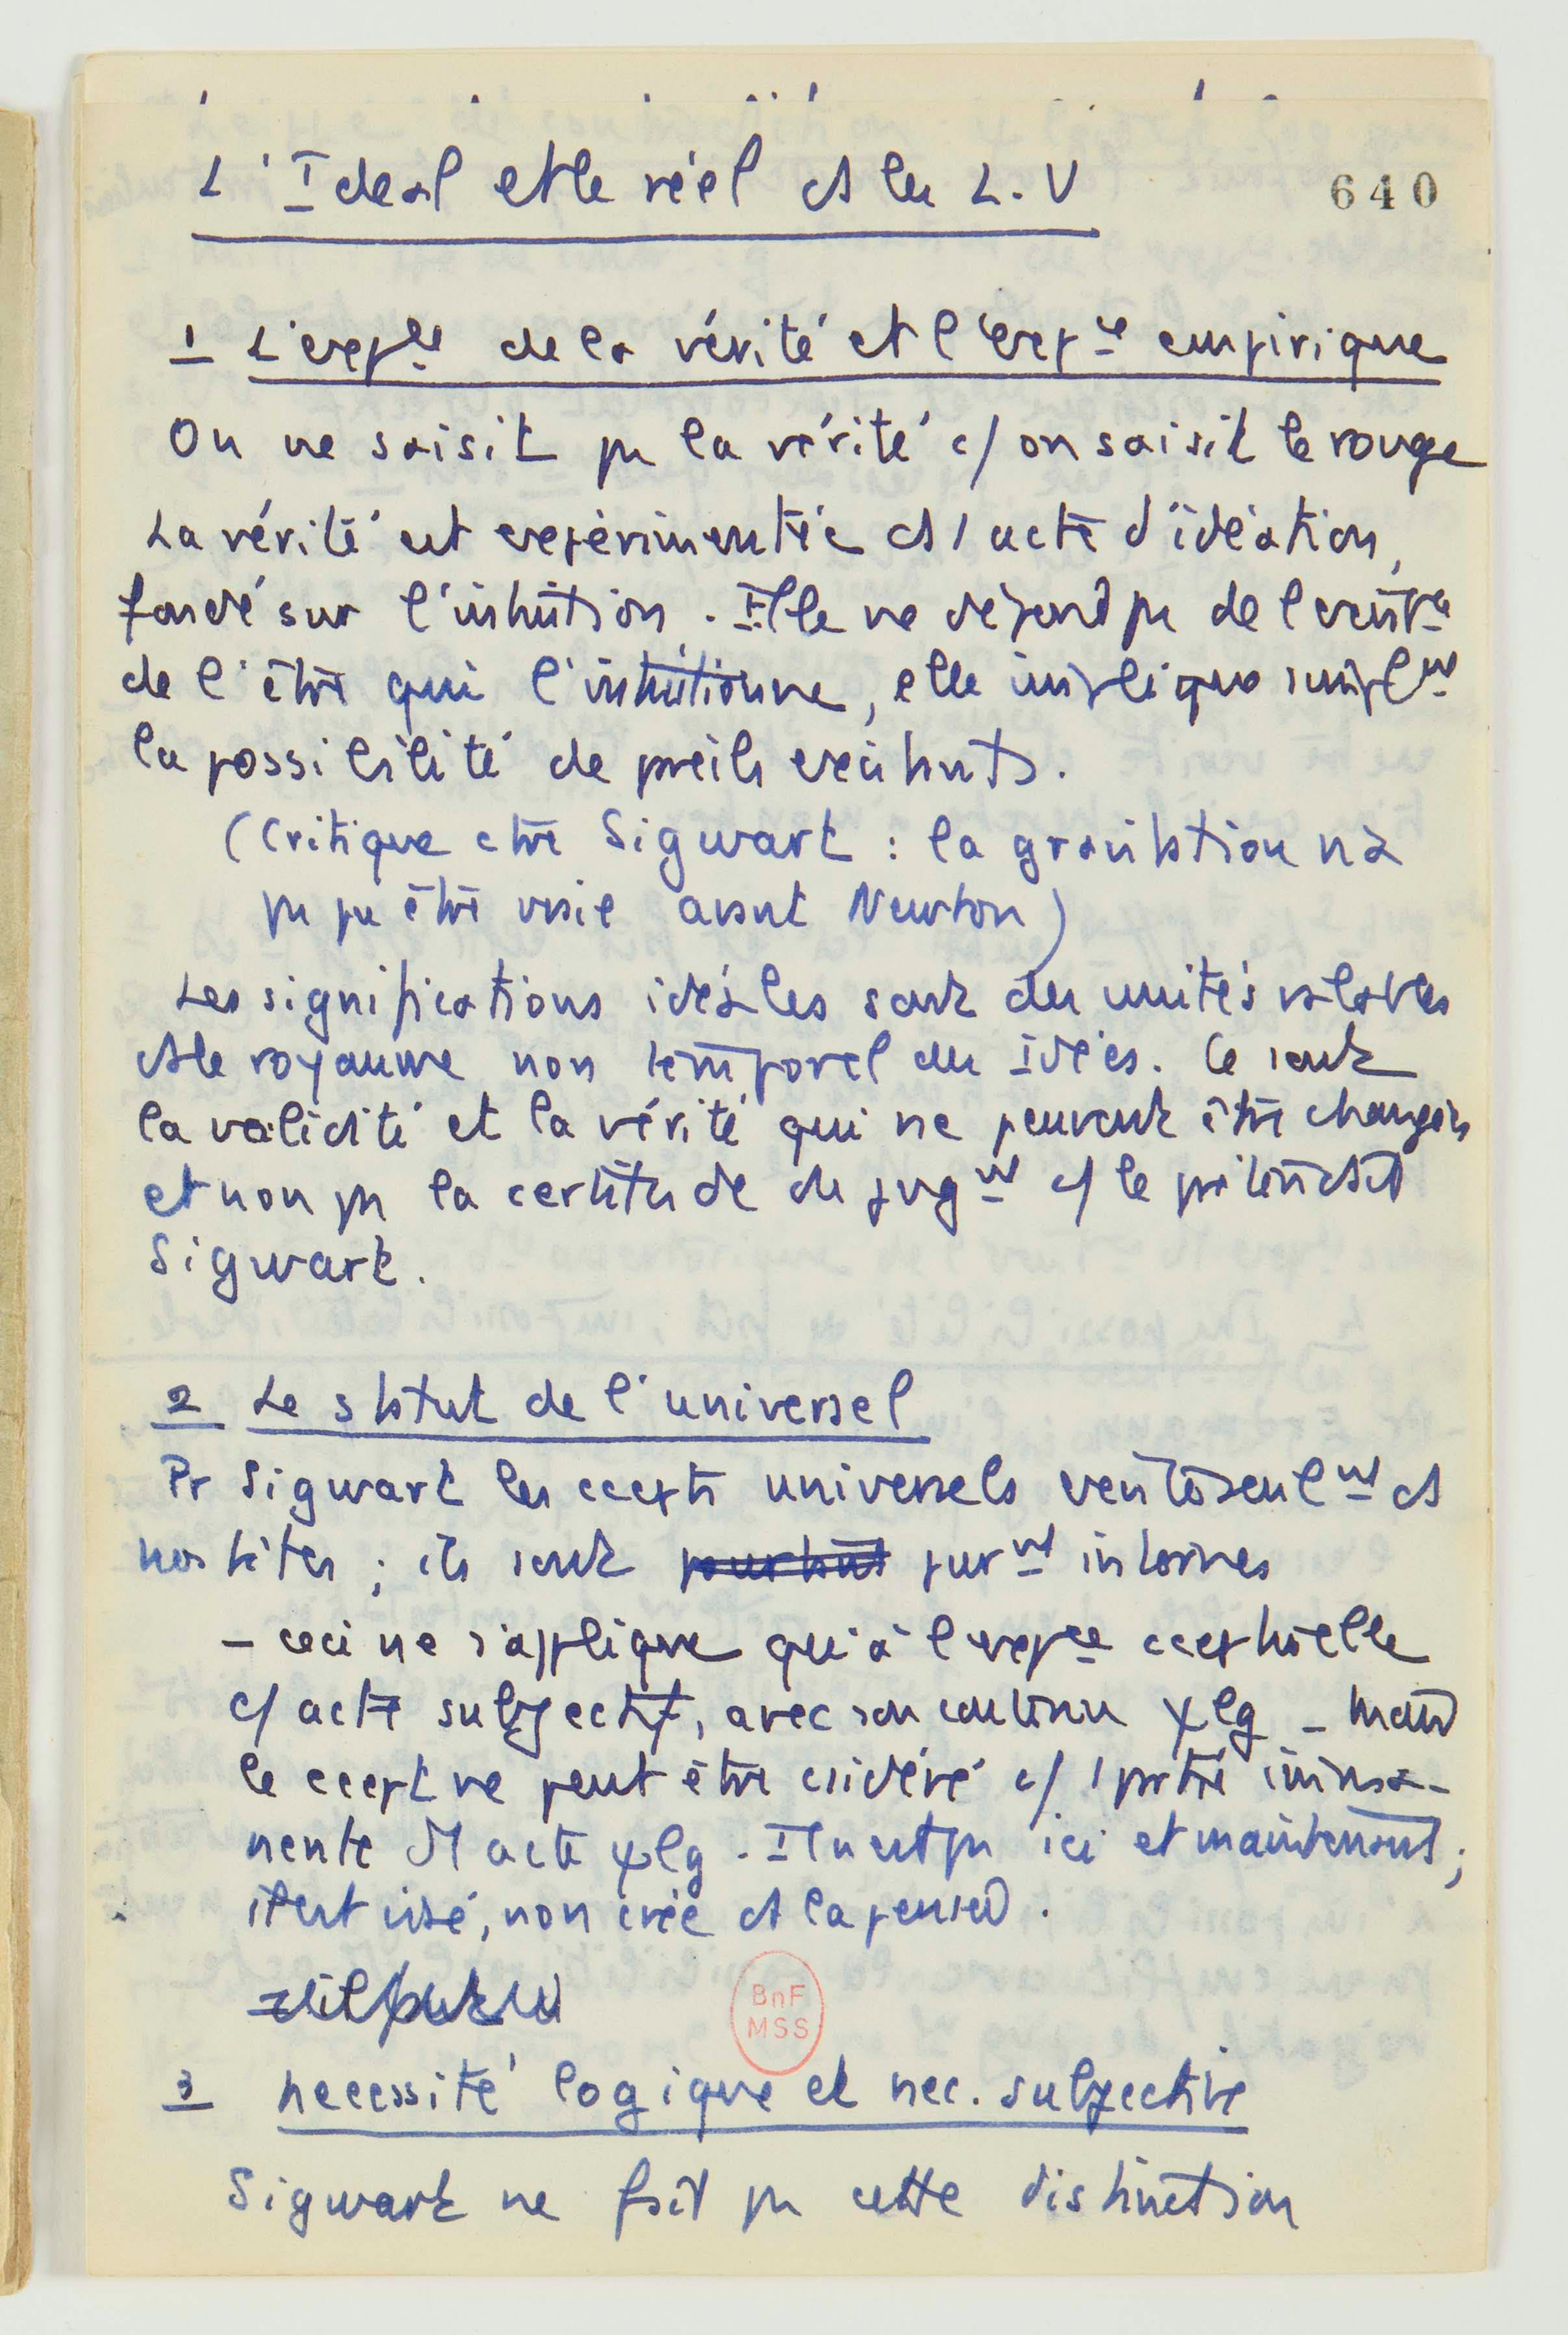 L'Ideal et le réel ds les L.V
640
1 L'expce de la vérité et l'expce empirique
On ne saisit pas la vérité c/ on saisit le rouge
La vérité est expérimentée ds 1 acte d'idéation,
fondé sur l'intuition. Elle ne dépend pas de l'existce
de l'être qui l'intuitionne, elle implique simplmt
la possibilité de pareils existants.
(Critique ctre Sigwart : la gravitation n'a
pas pu être vraie avant Newton)
Les significations idéales sont des unités valables
ds le royaume non temporel des Idées. Ce sont
la validité et la vérité qui ne peuvent être changées
et non pas la certitude du jugmt c/ le prétendait
Sigwart.
2 Le statut de l'universel
Pr Sigwart les ccepts universels existent seulmt ds
nos têtes ; ils sont pourtant purmt internes
- ceci ne s'applique qu'à l'expce cceptuelle
c/ acte subjectif, avec son contenu ψlg - mais
le ccept ne peut être csidéré c/ 1 partie imma-
nente d'1 acte ψlg. Il n'est pas ici et maintenant ;
il est visé, non créé ds la pensée.
BnF
MSS
3 necessité logique et nec. subjective
Sigwart ne fait pas cette distinction